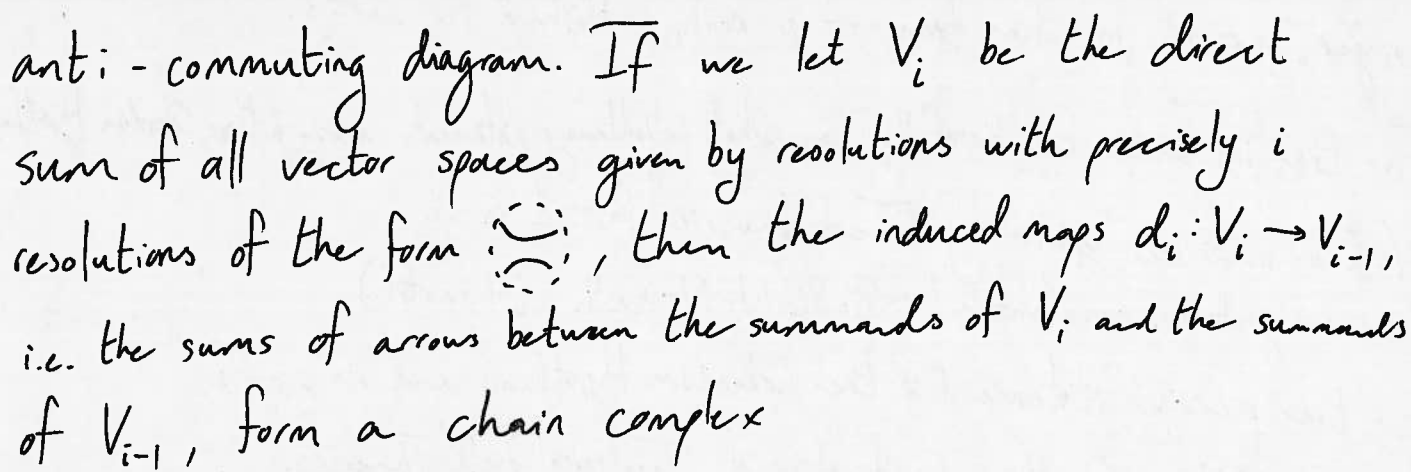 anti-commuting diagram. If we let V_i be the direct
sum of all vector spaces given by resolutions with precisely i
resolutions of the form , then the induced maps d_i : V_i → V_{i-1},
i.e. the sums of arrows between the summands of V_i and the summands
of V_{i-1}, form a chain complex